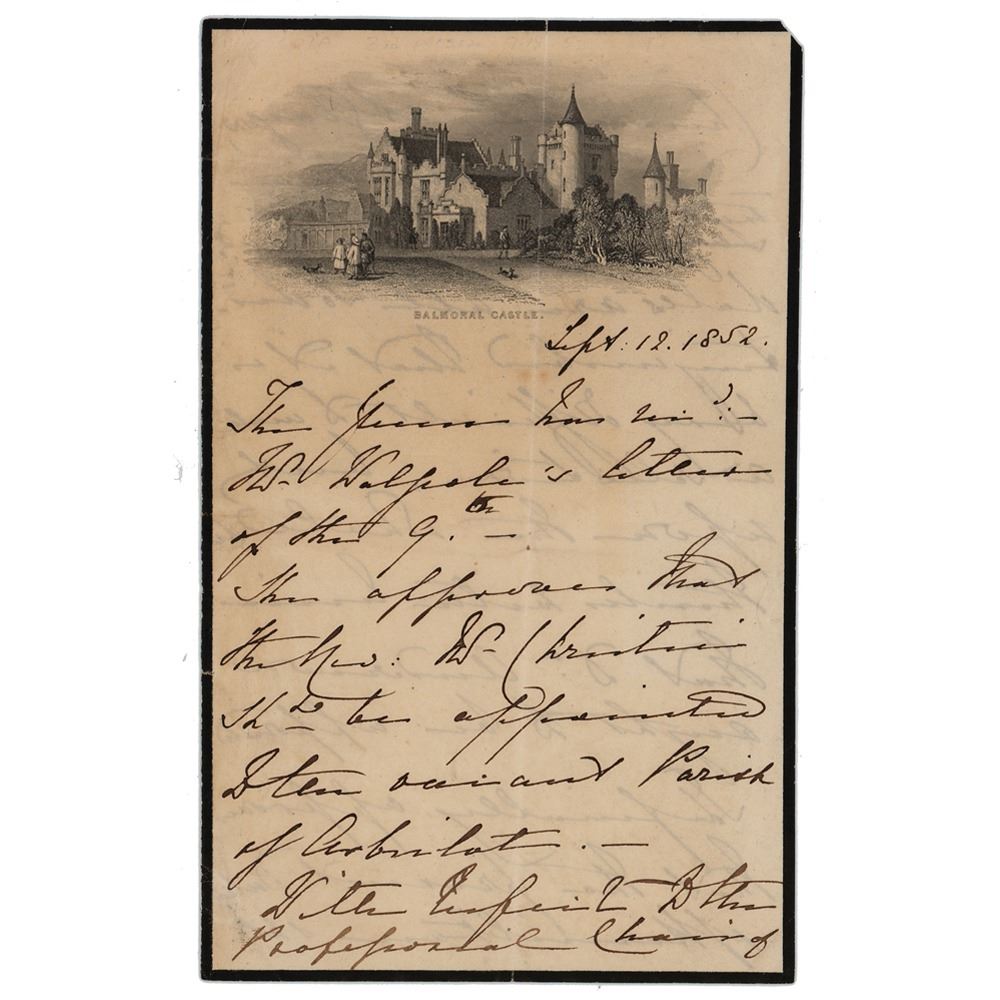 BALMORAL CASTLE.
Sept: 12. 1852.
The Queen has recd:—
Mr. Walpole's letter
of the 9.th —
She approves that
the Rev: Mr. Christie
shld be appointed
to the vacant Parish
of Arbirlot. —
With respect to the
Professorial Chair of